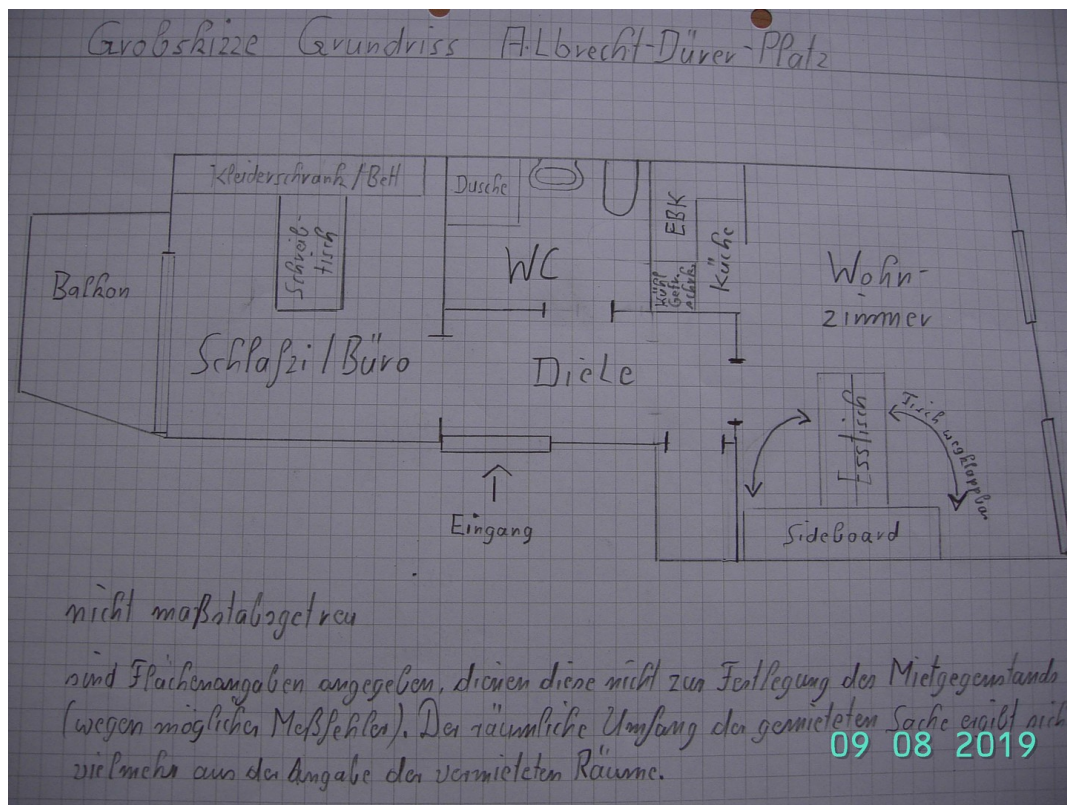 Grobskizze Grundriss Albrecht-Dürer-Platz
Kleiderschrank/Bett
Dusche
Schreib-
tisch
EBK
Küche
Kühl
Gefr.
schrk.
Balkon
WC
Wohn-
zimmer
Schlafzi/Büro
Diele
Esstisch
Tisch wegklappbar
Eingang
Sideboard
nicht maßstabsgetreu
sind Flächenangaben angegeben, dienen diese nicht zur Festlegung des Mietgegenstands
(wegen möglicher Meßfehler). Der räumliche Umfang der gemieteten Sache ergibt sich
vielmehr aus der Angabe der vermieteten Räume.
09 08 2019